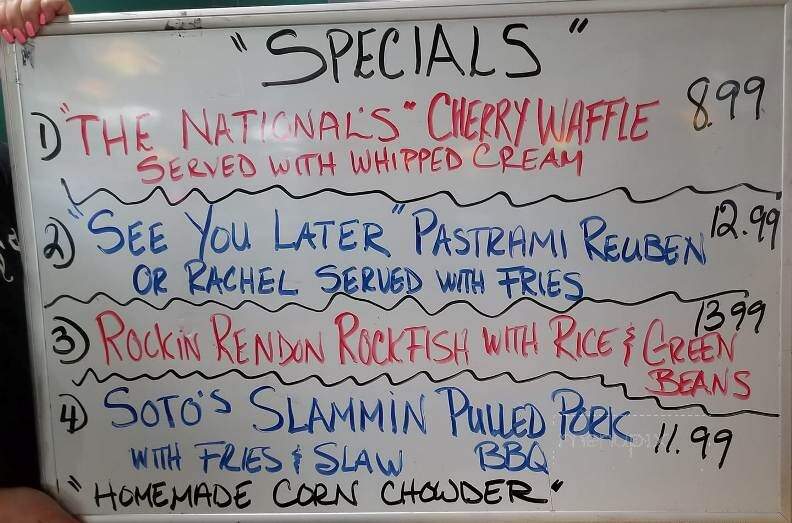 "SPECIALS"
1) "THE NATIONAL'S" CHERRY WAFFLE 8.99
SERVED WITH WHIPPED CREAM
2) "SEE YOU LATER" PASTRAMI REUBEN 12.99
OR RACHEL SERVED WITH FRIES
3) ROCKIN RENDON ROCKFISH WITH RICE & GREEN 13 99
BEANS
4) SOTO'S SLAMMIN PULLED PORK 11.99
WITH FRIES & SLAW BBQ
"HOMEMADE CORN CHOWDER"